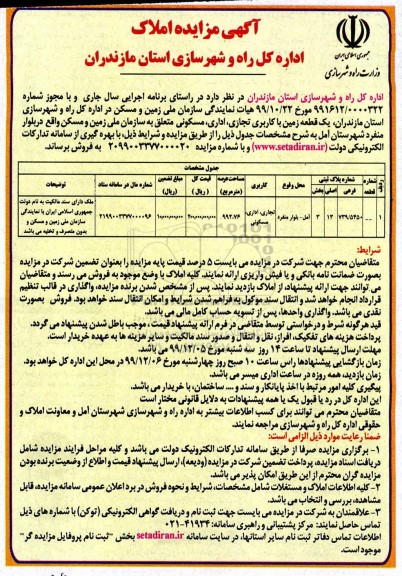 آگهی مزایده املاک
اداره کل راه و شهرسازی استان مازندران
جمهوری اسلامی ایران
وزارت راه و شهرسازی
اداره کل راه و شهرسازی استان مازندران در نظر دارد در راستای برنامه اجرایی سال جاری و با مجوز شماره
۹۹۱۶۱۲/۰۰۰۰۳۲۲ مورخ ۹۹/۱۰/۲۲ هیات نمایندگی سازمان ملی زمین و مسکن در اداره کل راه و شهرسازی
استان مازندران، یک قطعه زمین با کاربری تجاری، اداری، مسکونی متعلق به سازمان ملی زمین و مسکن واقع دربلوار
منفرد شهرستان آمل به شرح مشخصات جدول ذیل را از طریق مزایده و شرایط ذیل، با بهره گیری از سامانه تدارکات
الکترونیکی دولت (www.setadiran.ir) و با شماره مزایده ۲۰۹۹۰۰۳۳۷۷۰۰۰۰۲۰ به فروش برساند.
جدول مشخصات
ردیف شماره قطعه شماره پلاک ثبتی فرعی اصلی بخش محل وقوع کاربری مساحت عرصه (مترمربع) قیمت کل (ریال) مبلغ تضمین (ریال) شماره مال در سامانه ستاد توضیحات
۱ -- ۷۳۹/۵۴۵۰ ۱۳ ۳ آمل - بلوار منفرد تجاری، اداری، مسکونی ۹۹۲.۷۶ ۲۱۹۹۰۰۳۳۷۷۰۰۰۰۹۶ ملک دارای سند مالکیت به نام دولت جمهوری اسلامی ایران با نمایندگی سازمان ملی زمین و مسکن و بدون متصرف و تخلیه می باشد
شرایط:
متقاضیان محترم جهت شرکت در مزایده می بایست ۵ درصد قیمت پایه مزایده را بعنوان تضمین شرکت در مزایده
بصورت ضمانت نامه بانکی و یا فیش واریزی ارائه نمایند. کلیه املاک با وضع موجود به فروش می رسند و متقاضیان
می توانند جهت ارائه پیشنهاد، از املاک بازدید نمایند. پس از مشخص شدن برنده مزایده، واگذاری در قالب تنظیم
قرارداد انجام خواهد شد و انتقال سند موکول به فراهم شدن شرایط و امکان انتقال سند خواهد بود. فروش بصورت
نقدی می باشد. واگذاری واحدها، پس از تسویه حساب کامل مالی می باشد.
قید هرگونه شرط و درخواستی توسط متقاضی در فرم ارائه پیشنهاد قیمت، موجب باطل شدن پیشنهاد می گردد.
پرداخت هزینه های تفکیک، افراز، نقل و انتقال و صدور سند مالکیت و سایر هزینه ها به عهده خریدار است.
مهلت ارسال پیشنهاد تا ساعت ۱۴ روز سه شنبه مورخ ۹۹/۱۲/۰۵ می باشد.
زمان بازگشایی پیشنهادها راس ساعت ۱۰ صبح روز چهارشنبه مورخ ۹۹/۱۲/۰۶ در محل این اداره کل خواهد بود.
زمان بازدید، همه روزه در ساعت اداری میسر می باشد.
پیگیری کلیه امور مرتبط با اخذ پایانکار و سند و .... ساختمان، با خریدار می باشد.
این اداره کل در رد یا قبول یک یا همه پیشنهادات به دلایل قانونی مختار است
متقاضیان محترم می توانند برای کسب اطلاعات بیشتر به اداره راه و شهرسازی شهرستان آمل و معاونت املاک و
حقوقی اداره کل راه و شهرسازی مراجعه نمایند.
ضمنا رعایت موارد ذیل الزامی است:
۱- برگزاری مزایده صرفا از طریق سامانه تدارکات الکترونیک دولت می باشد و کلیه مراحل فرایند مزایده شامل
دریافت اسناد مزایده، پرداخت تضمین شرکت در مزایده (ودیعه)، ارسال پیشنهاد قیمت و اطلاع از وضعیت برنده بودن
مزایده گران محترم از این طریق امکان پذیر می باشد.
۲- کلیه اطلاعات املاک و مستغلات شامل مشخصات، شرایط و نحوه فروش در برد اعلان عمومی سامانه مزایده، قابل
مشاهده، بررسی و انتخاب می باشد.
۳- علاقمندان به شرکت در مزایده می بایست جهت ثبت نام و دریافت گواهی الکترونیکی (توکن) با شماره های ذیل
تماس حاصل نمایند: مرکز پشتیبانی و راهبری سامانه: ۴۱۹۳۴-۰۲۱
اطلاعات تماس دفاتر ثبت نام سایر استانها، در سایت سامانه setadiran.ir بخش "ثبت نام پروفایل مزایده گر"
موجود است.